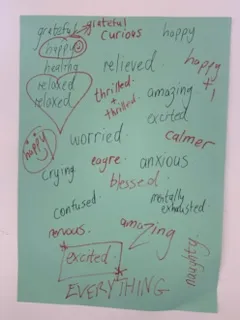 grateful grateful
curious
happy
happy
healing
relieved
happy
+1
relaxed
relaxed
thrilled
+
thrilled
amazing
excited
happy
worried
calmer
crying
eagre
anxious
blessed
confused
mentally
exhausted
nervous
amazing
naughty
excited
EVERYTHING